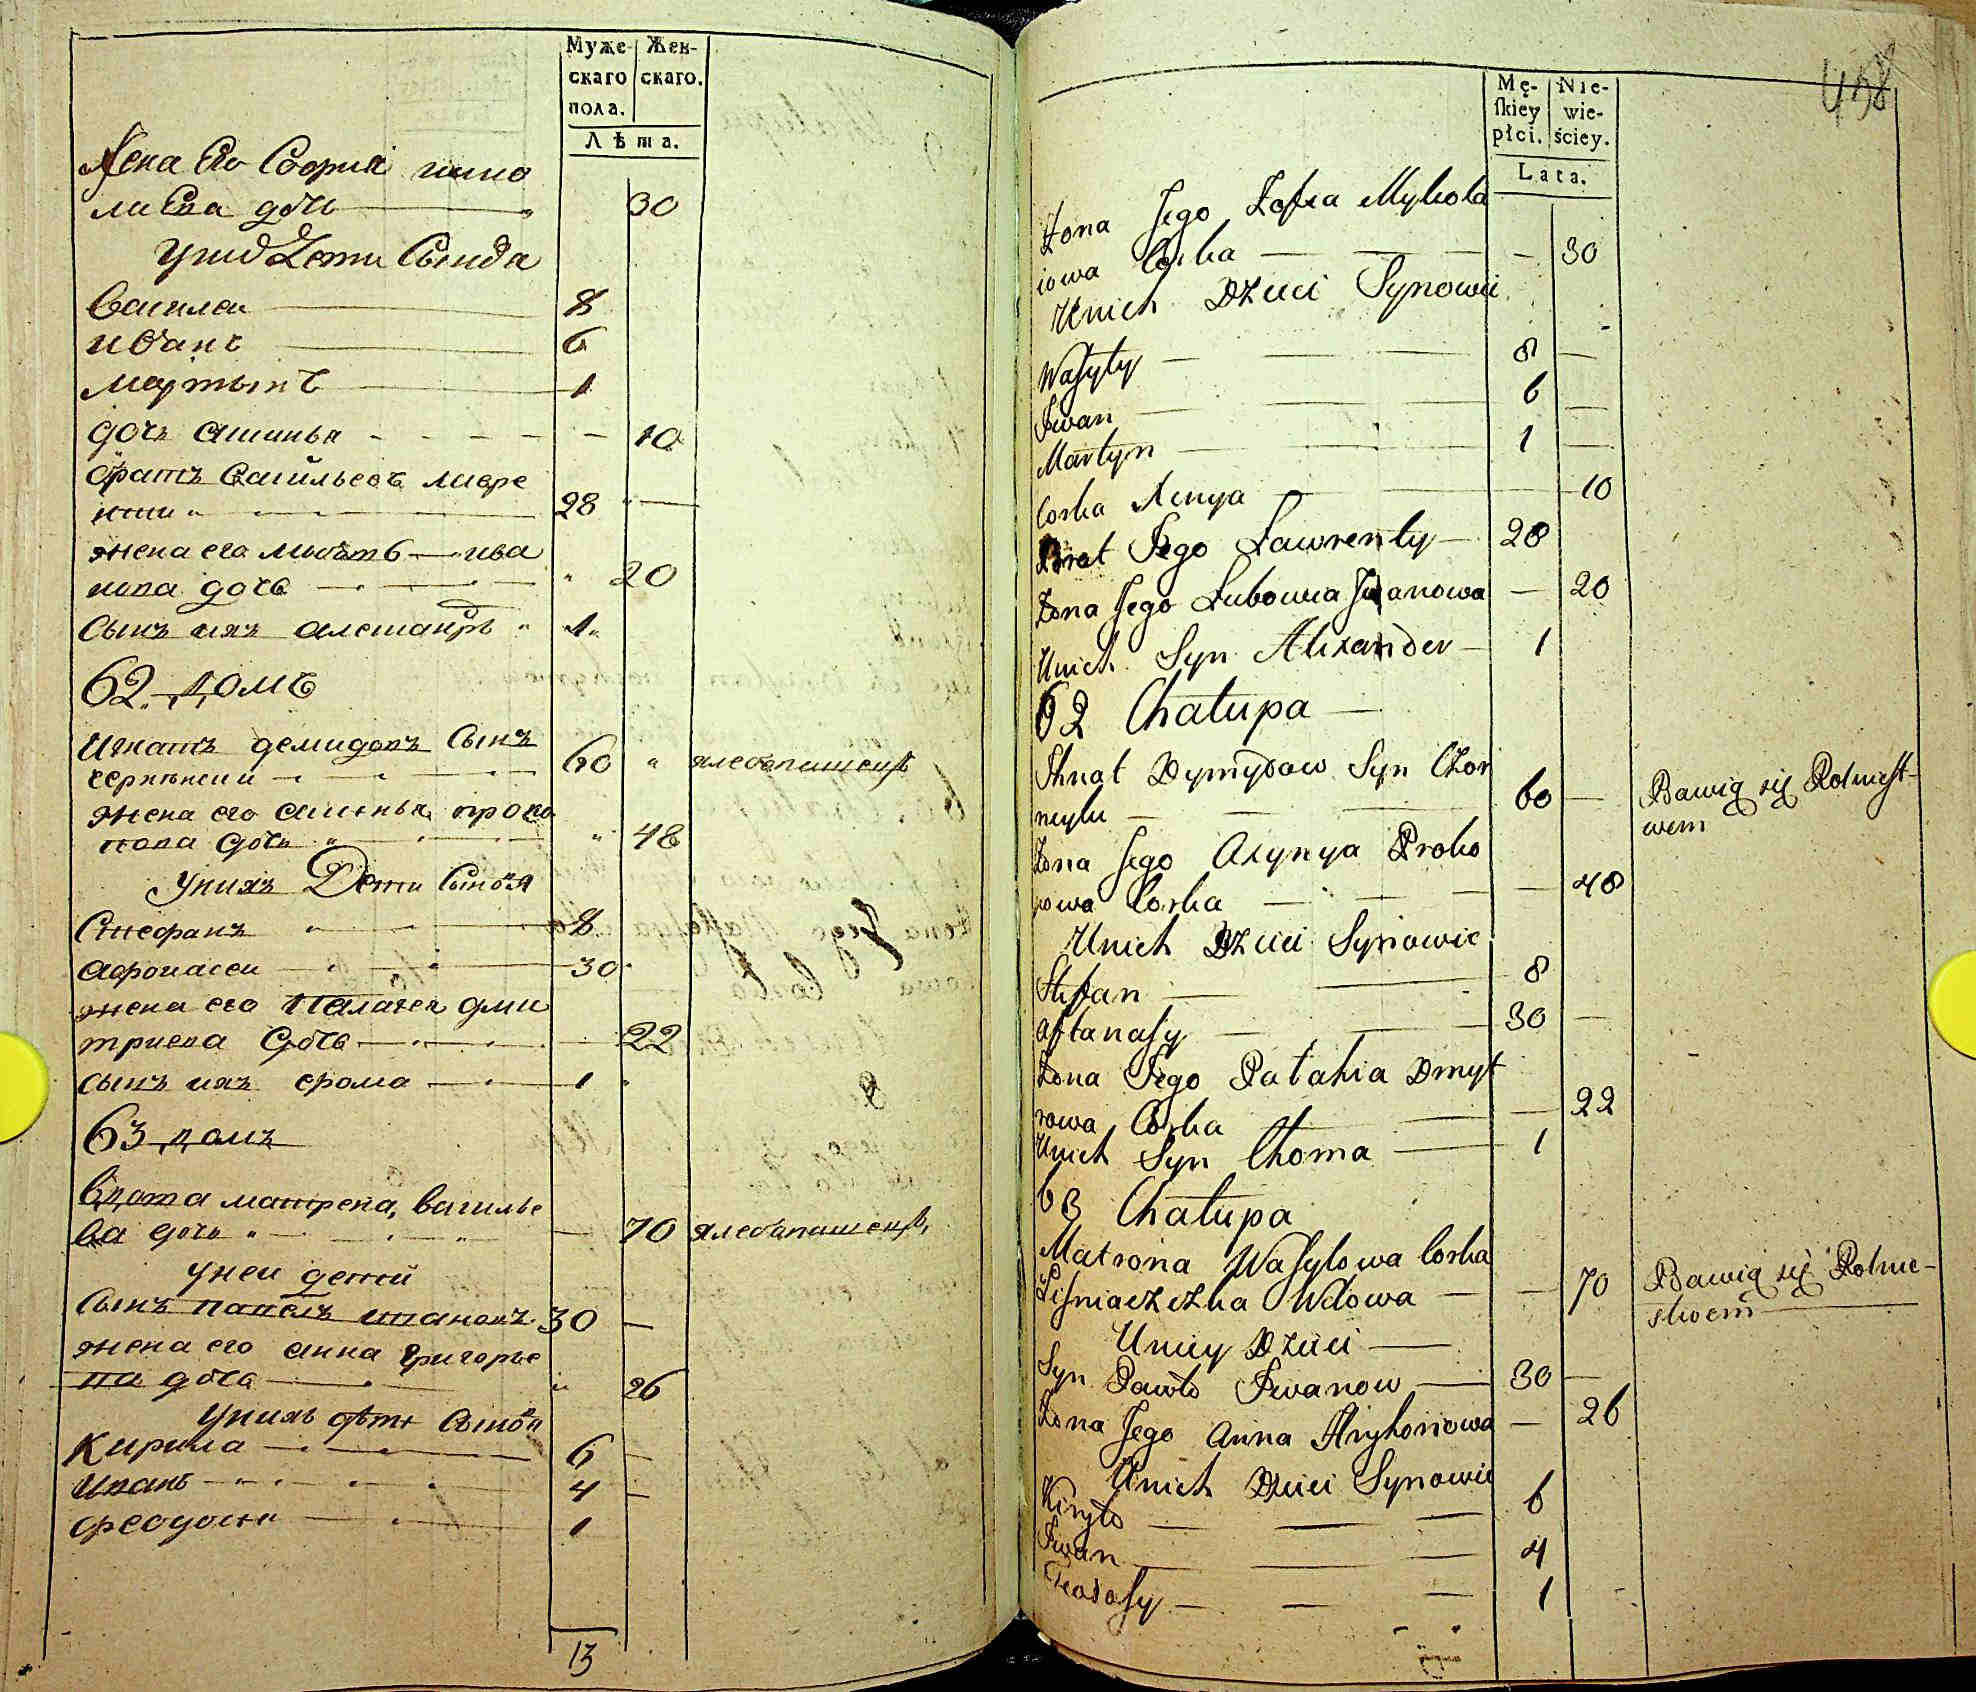 Муже-
скаго
пола.
Жен-
скаго.
Лѣта.
Жена Его София нико
лаева дочь 30
У них Дети Сынова
Василеи 8
иванъ 6
мартынъ 1
дочь аксинья 10
братъ васильевъ лавре
нти 28
жена его любовь ива
нова дочь 20
Сынъ ихъ александръ 1
62 домъ
Игнатъ демидовъ Сынъ
60 хлебопашецъ
жена его аксинья проко
пова дочь 48
У нихъ Дети Сынов
Стефанъ 8
афонасеи 30
жена его Палагея дми
триева дочь 22
сынъ ихъ фома 1
63 домъ
вдова матрена, василье
ва дочь 70 хлебопашецъ
У неи детеи
Сынъ павелъ ивановъ 30
жена его анна григорье
ва дочь 26
У нихъ дѣти Сынов
Кирила 6
Иванъ 4
феодосии 1
13
458
Mę-
skiey
płci.
Nie-
wie-
ściey.
Lata.
Żona Jego Zofia Mykoła
iowa Corka 30
Unich Dzieci Synowie
Wasyly 8
Iwan 6
Martyn 1
Corka Axenya 10
Brat Jego Lawrenty 28
Żona Jego Lubowia Iwanowa 20
Unich Syn Alixander 1
62 Chałupa
Ihnat Dymydow Syn Czor
nylu 60 Bawią się Rolnict-
wem
Żona Jego Axynya Proko
powa Corka 48
Unich Dzieci Synowie
Stefan 8
Aftanasy 30
Żona Jego Palahia Dmyt
rowa Corka 22
Unich Syn Choma 1
63 Chałupa
Matrona Wasylowa Corka
Wdowa 70 Bawią się Rolnic-
stwem
Uniey Dzieci
Syn Pawło Iwanow 30
Żona Jego Anna Hryhoriowa 26
Unich Dzieci Synowie
Kiryło 6
Iwan 4
Teodosy 1